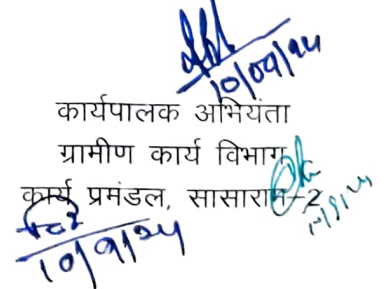 10/09/24
कार्यपालक अभियंता
ग्रामीण कार्य विभाग
कार्य प्रमंडल, सासाराम-2
10/9/24